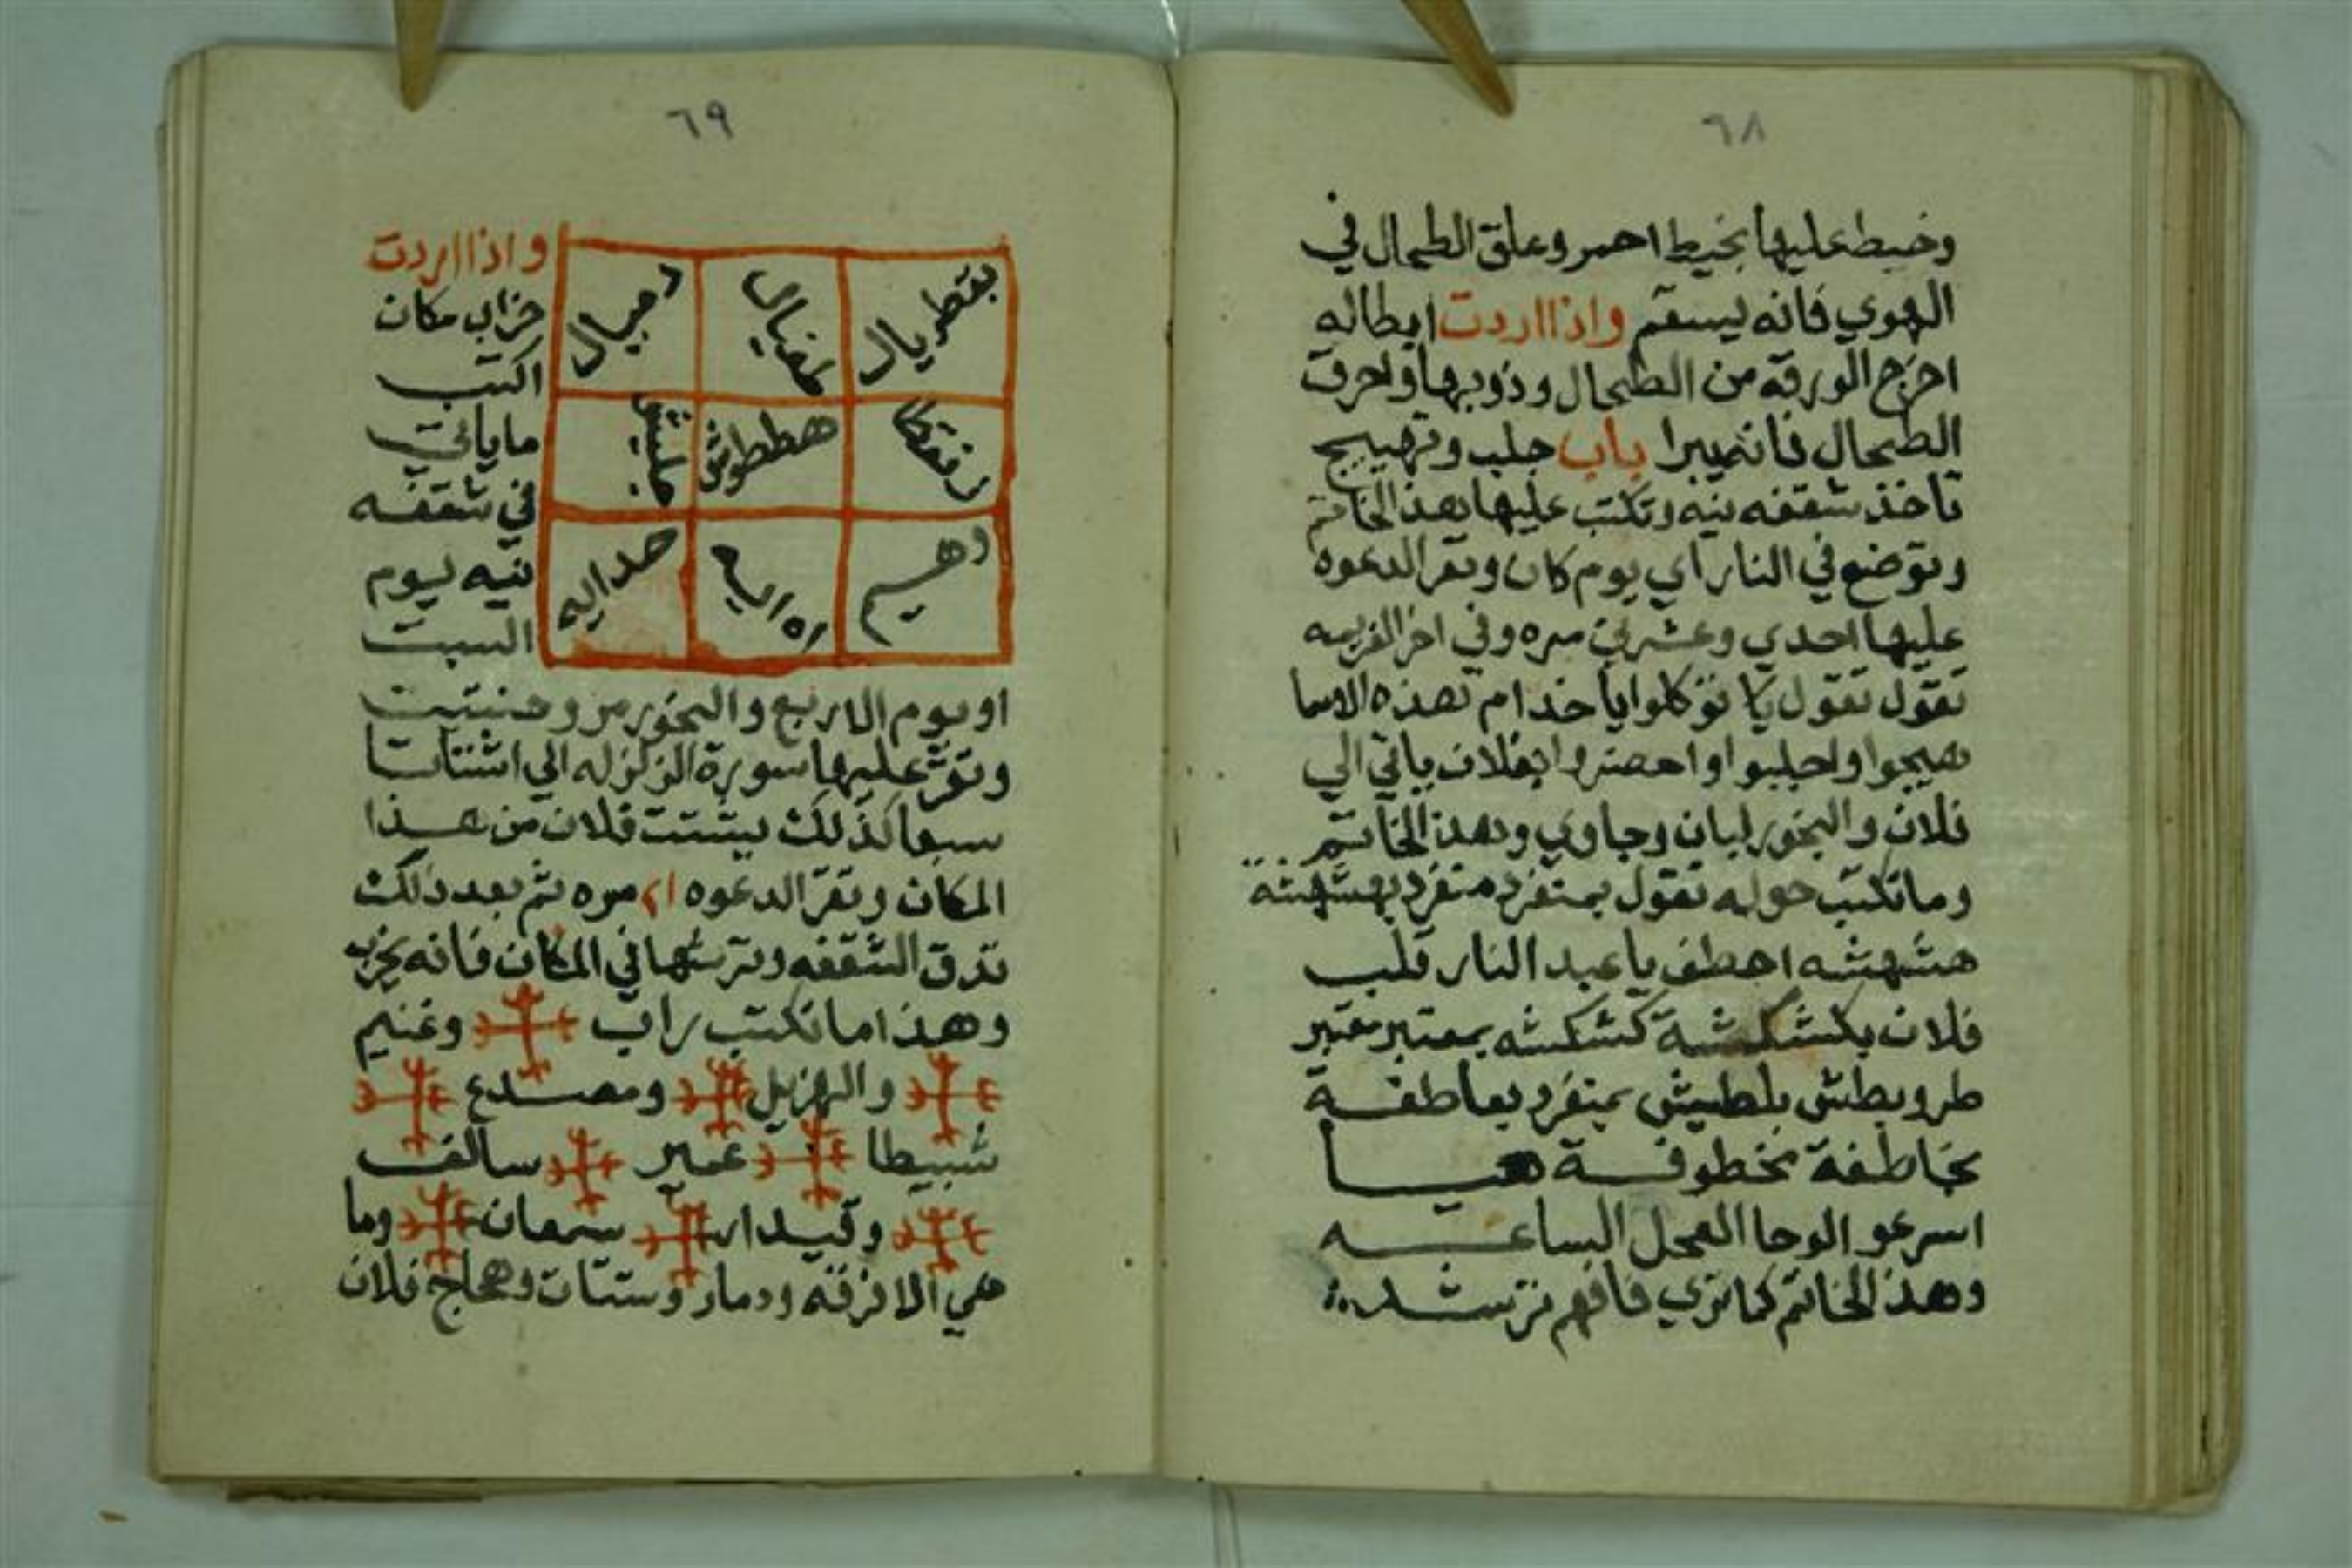 ٦٨
وخيط عليها بخيط احمر وعلق الطحال في
الهوي فانه يسقم واذا اردت ابطاله
اخرج الورقه من الطحال وذوبها واحرق
الطحال فانه يبرا باب جلب وتهييج
تاخذ شقفه نيه وتكتب عليها هذ الخاتم
وتوضع في النار اي يوم كان وتقرا الدعوه
عليها احدي وعشرين مره وفي اخر العزيمه
تقول تقول يا توكلوا يا خدام هذه الاسما
هيجوا واجلبوا واحضروا فلان ياتي الي
فلان والبخور لبان وجاوي وهذ الخاتم
وما تكتب حوله تقول بمتفرد متفرد بهشهشة
هشهشه اخطف يا عبد النار قلب
فلان بكشكشة كشكشه بمعتبر معتبر
طرويطش بلطيش بمتفرد بعاطفة
بخاطفة مخطوفة هيا
اسرعو الوحا العجل الساعه
وهذ الخاتم كما تري فافهم ترشد
٦٩
بقطريال طفيال دميال
هططوش
وهيم حداليه
واذا اردت
خراب مكان
اكتب
ما ياتي
في شقفه
نيه يوم
السبت
او يوم الاربع والبخور مر وحنتيت
وتقرا عليها سورة الزلزله الي اشتاتا
سبعا كذلك يتشتت فلان من هذا
المكان وتقرا الدعوه مره ثم بعد ذلك
تدق الشقفه وترشها في المكان فانه يخرب
وهذا ما تكتب راب وغنيم
والهزيل ومصدع
شبيطا عمير سالف
وقيدار سمعان وما
هي الا فرقه ودمار وشتات وهجاج فلان